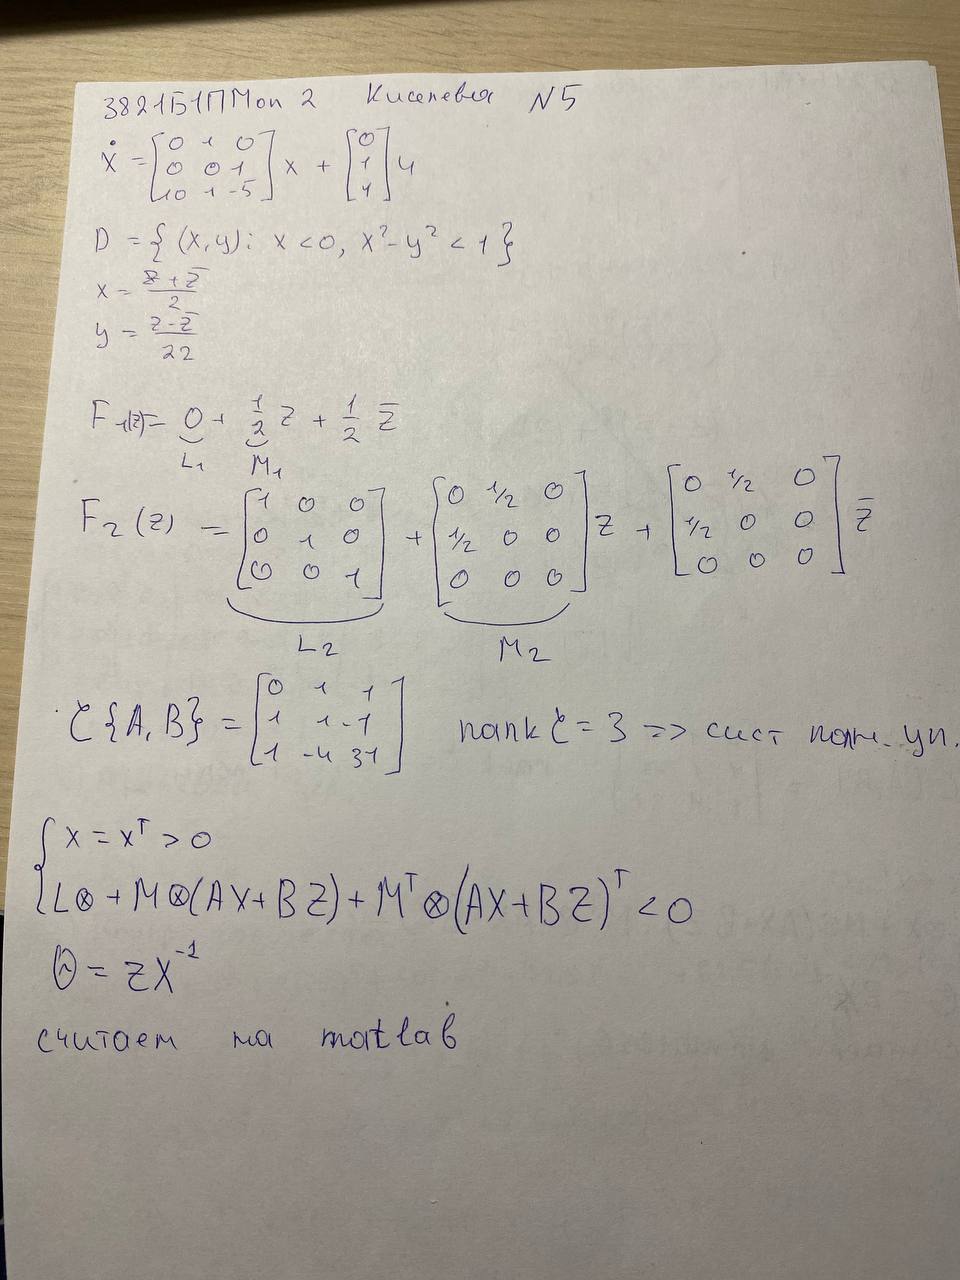 3821Б1ПМоп 2 Киселевая N5
ẋ = [0 1 0; 0 0 1; 10 1 -5] x + [0; 1; 1] u
D = { (x, y): x < 0, x² - y² < 1 }
x = (z + z̄)/2
y = (z - z̄)/22
F₁(z) = 0 + 1/2 z + 1/2 z̄
L₁ M₁
F₂(z) = [1 0 0; 0 1 0; 0 0 1] + [0 1/2 0; 1/2 0 0; 0 0 0] z + [0 1/2 0; 1/2 0 0; 0 0 0] z̄
L₂ M₂
C{A, B} = [0 1 1; 1 1 -1; 1 -4 31] rank C = 3 => сист полн. уп.
{ x = xᵀ > 0
L⊗ + M⊗(AX + BZ) + Mᵀ⊗(AX + BZ)ᵀ < 0
Θ = ZX⁻¹
считаем на matlab